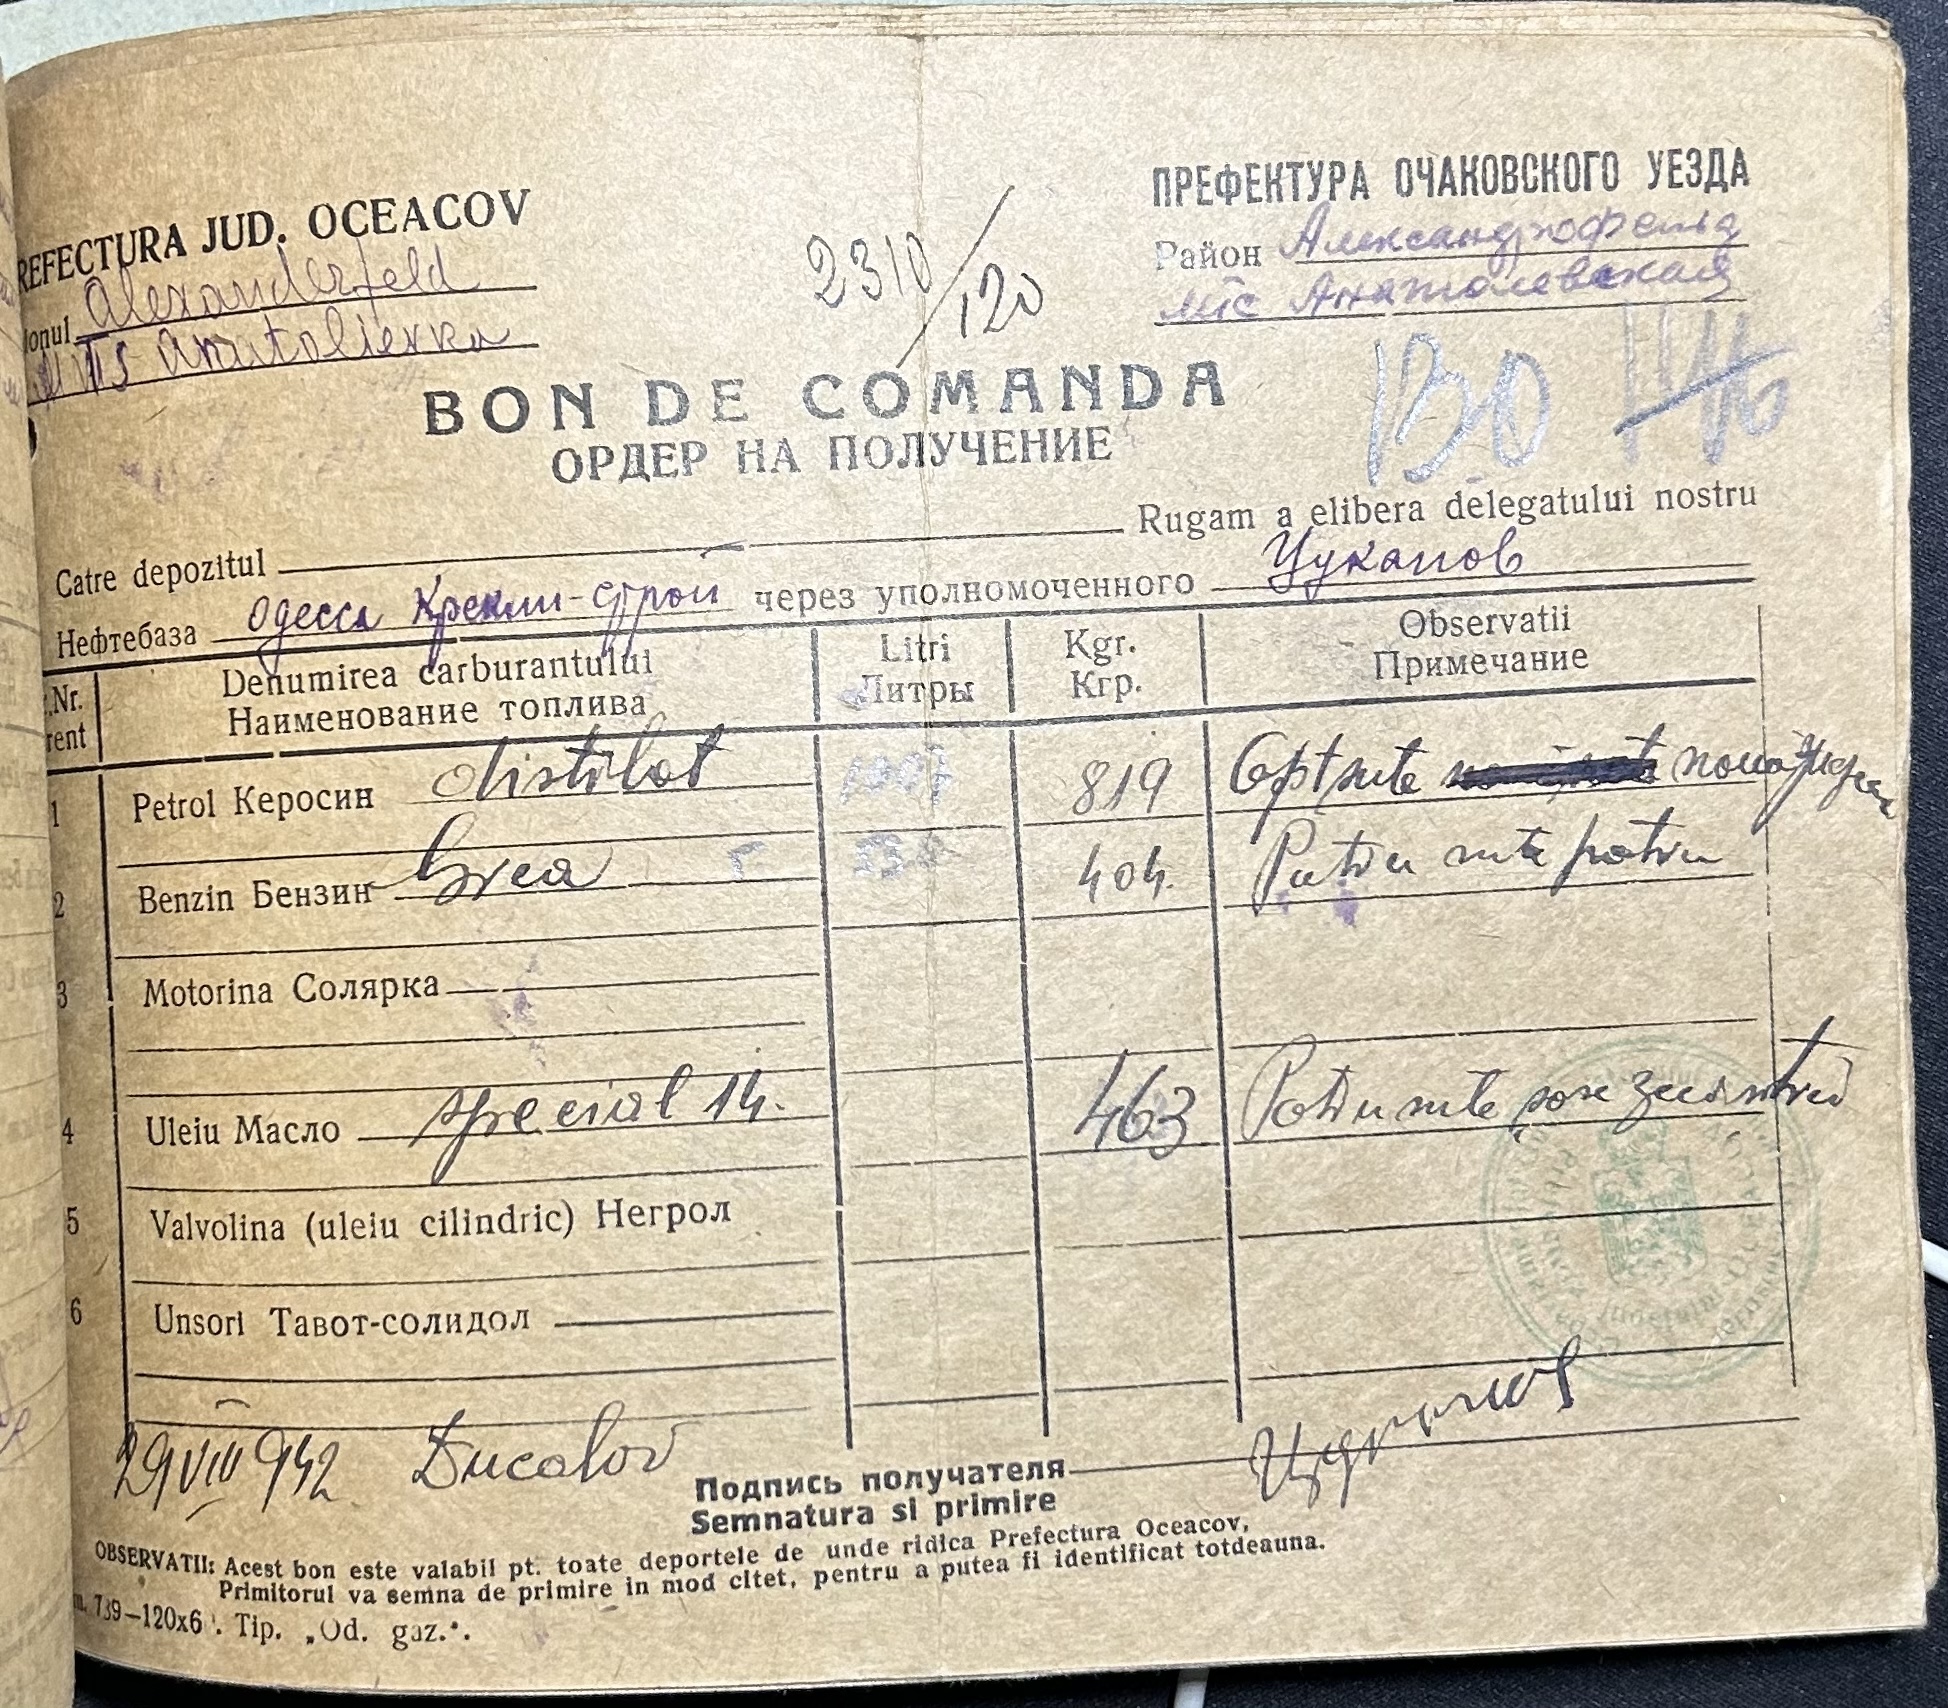 REFECTURA JUD. OCEACOV
ionul Alexanderfeld
MTS Anatolievka
2310/120
ПРЕФЕКТУРА ОЧАКОВСКОГО УЕЗДА
Район Александрофельд
мтс Анатолевская
BON DE COMANDA
ОРДЕР НА ПОЛУЧЕНИЕ
Catre depozitul Rugam a elibera delegatului nostru
Нефтебаза Одесса через уполномоченного Цуканов
Nr. Denumirea carburantului Litri Kgr. Observatii
rent Наименование топлива Литры Кгр. Примечание
1 Petrol Керосин distilat 819 Optsute
2 Benzin Бензин 404. Patru sute patru
3 Motorina Солярка
4 Uleiu Масло special 14. 463 Patru sute șase zeci si trei
5 Valvolina (uleiu cilindric) Негрол
6 Unsori Тавот-солидол
29 VIII 942 Ducalov
Подпись получателя
Semnatura si primire
OBSERVATII: Acest bon este valabil pt. toate deportele de unde ridica Prefectura Oceacov,
Primitorul va semna de primire in mod citet, pentru a putea fi identificat totdeauna.
739—120x6 . Tip. „Od. gaz.".